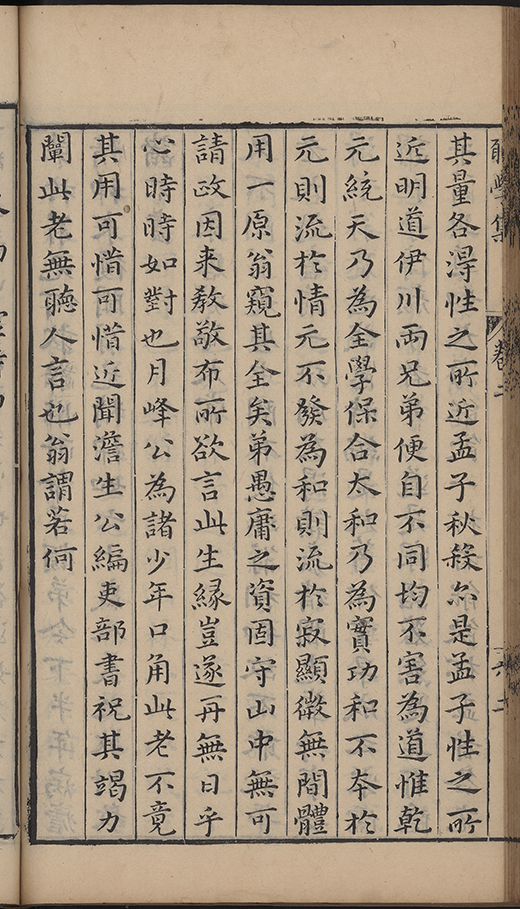 學集 卷二
其量各得性之所近孟子秋殺亦是孟子性之所
近明道伊川兩兄弟便自不同均不害為道惟乾
元統天乃為全學保合太和乃為實功和不本於
元則流於情元不發為和則流於寂顯微無間體
用一原翁窺其全矣弟愚庸之資固守山中無可
請政因来敎敬布所欲言此生緣豈遂再無日乎
心時時如對也月峰公為諸少年口角此老不竟
其用可惜可惜近聞澹生公編吏部書祝其竭力
闡此老無聽人言也翁謂若何